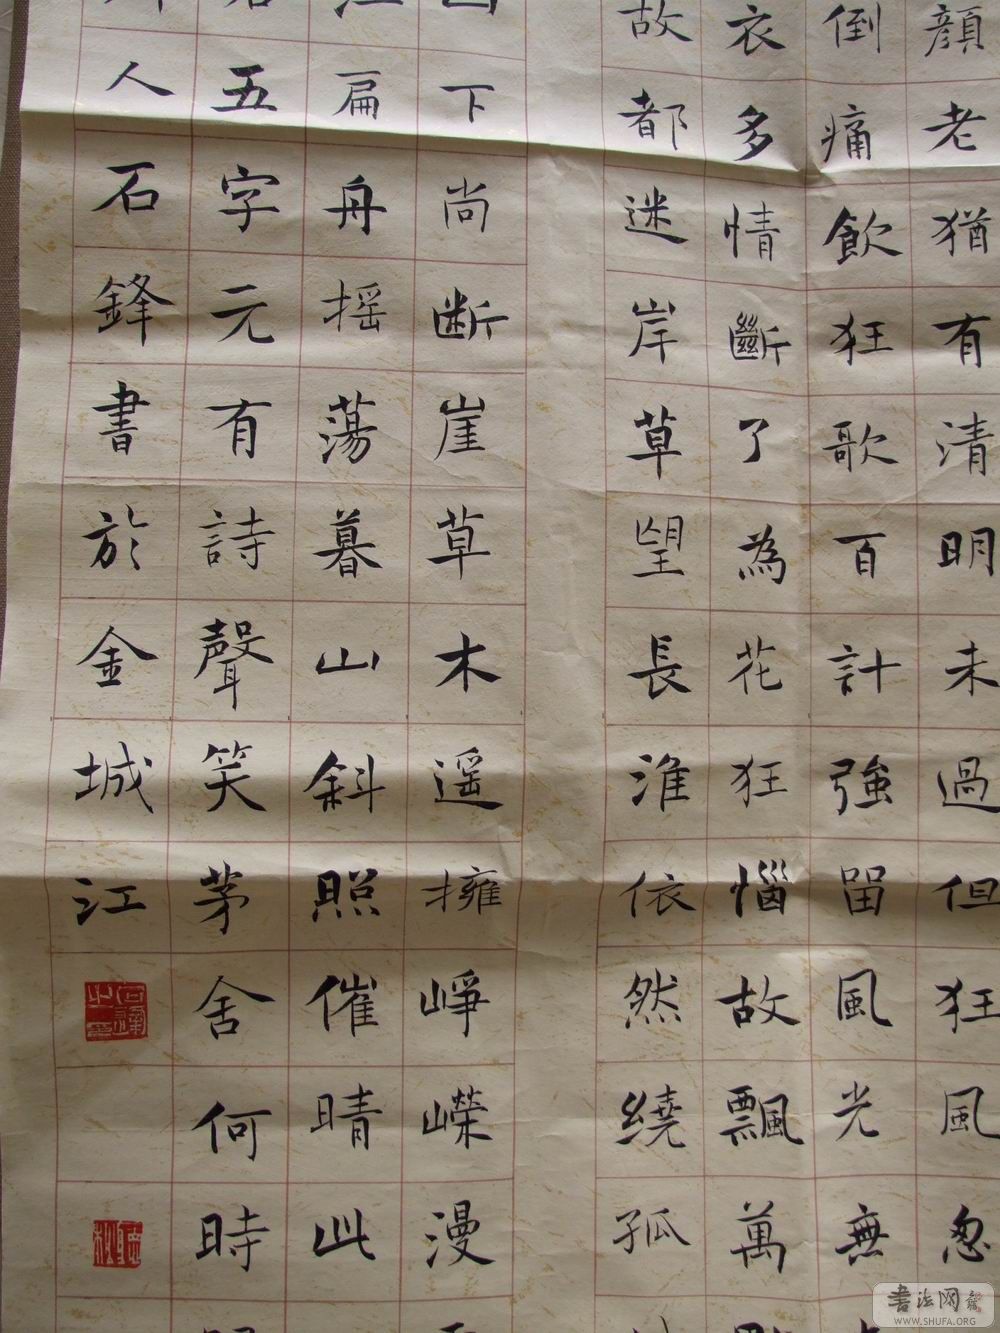 顏老猶有清明未過但狂風忽
倒痛飲狂歌百計強留風光無
衣多情斷了為花狂惱故飄萬
故都迷岸草望長淮依然繞孤
下尚断崖草木遥擁崢嶸漫
扁舟摇蕩暮山斜照催晴此
五字元有詩聲笑茅舍何時
人石鋒書於金城江
書法网
WWW.SHUFA.ORG